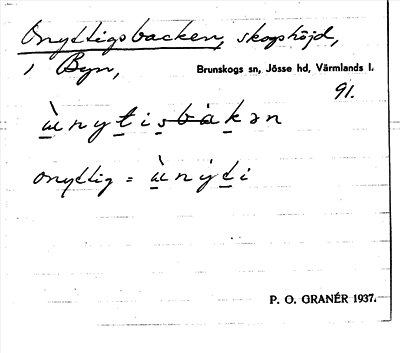 Onyttigsbacken, skogshöjd,
i Byn,
Brunskogs sn, Jösse hd, Värmlands l.
91.
ùnytisbàkən
onyttig = ùnýti
P. O. GRANÉR 1937.